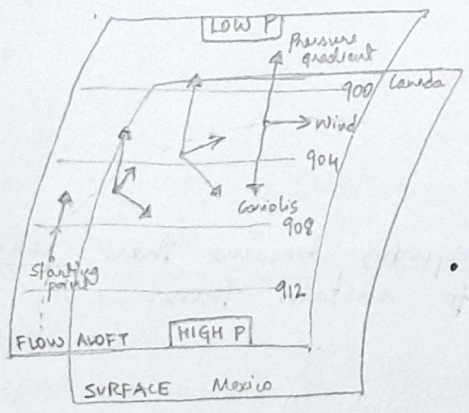 LOW P
Pressure
gradient
900
Canada
Wind
904
Coriolis
908
Starting
point
912
FLOW ALOFT
HIGH P
SURFACE Mexico